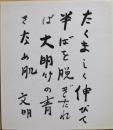 たくましく伸びて
半ばを脱ぎたれ
ば大明竹の青
きため肌
文明